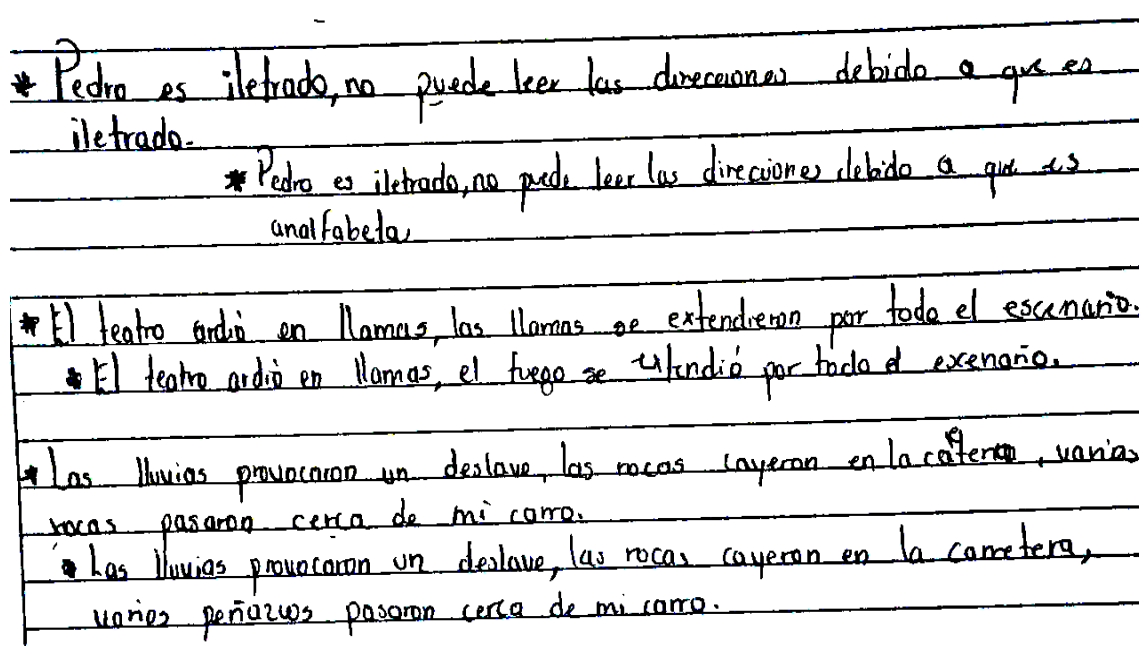 * Pedro es iletrado, no puede leer las direcciones debido a que es
iletrado.
* Pedro es iletrado, no puede leer las direcciones debido a que es
analfabeta
* El teatro ardió en llamas, las llamas se extendieron por todo el escenario.
* El teatro ardió en llamas, el fuego se extendió por todo el excenario.
* Las lluvias provocaron un deslave, las rocas cayeron en la , varias
rocas pasaron cerca de mi carro.
* Las lluvias provocaron un deslave, las rocas cayeron en la carretera,
varios peñazcos pasaron cerca de mi carro.